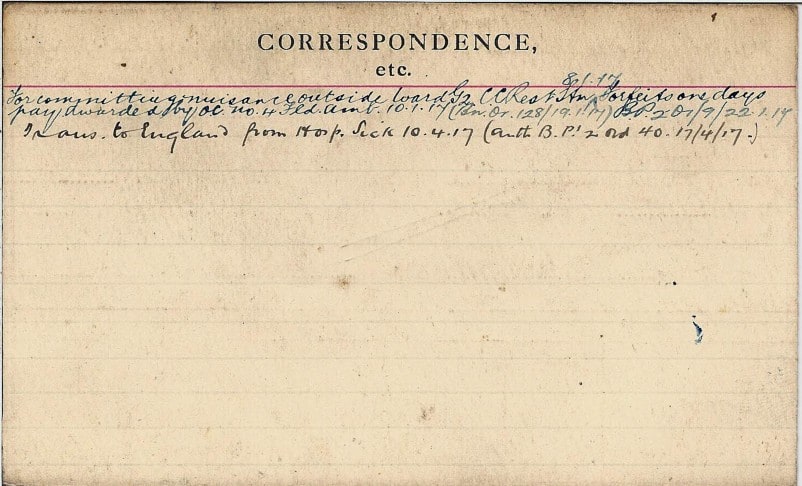 CORRESPONDENCE,
etc.
8.1.17
For committing nuisance outside ward G2 C C Rest Stn, Forfeits one days
pay awarded by OC No. 4 Fld. Amb. 10.1.17 (Bn. Or. 128/19.1.17) B.P. 2 O7/9/22.1.17
Trans. to England from Hosp. Sick 10.4.17 (auth B.P. 2 ord 40. 17/4/17.)